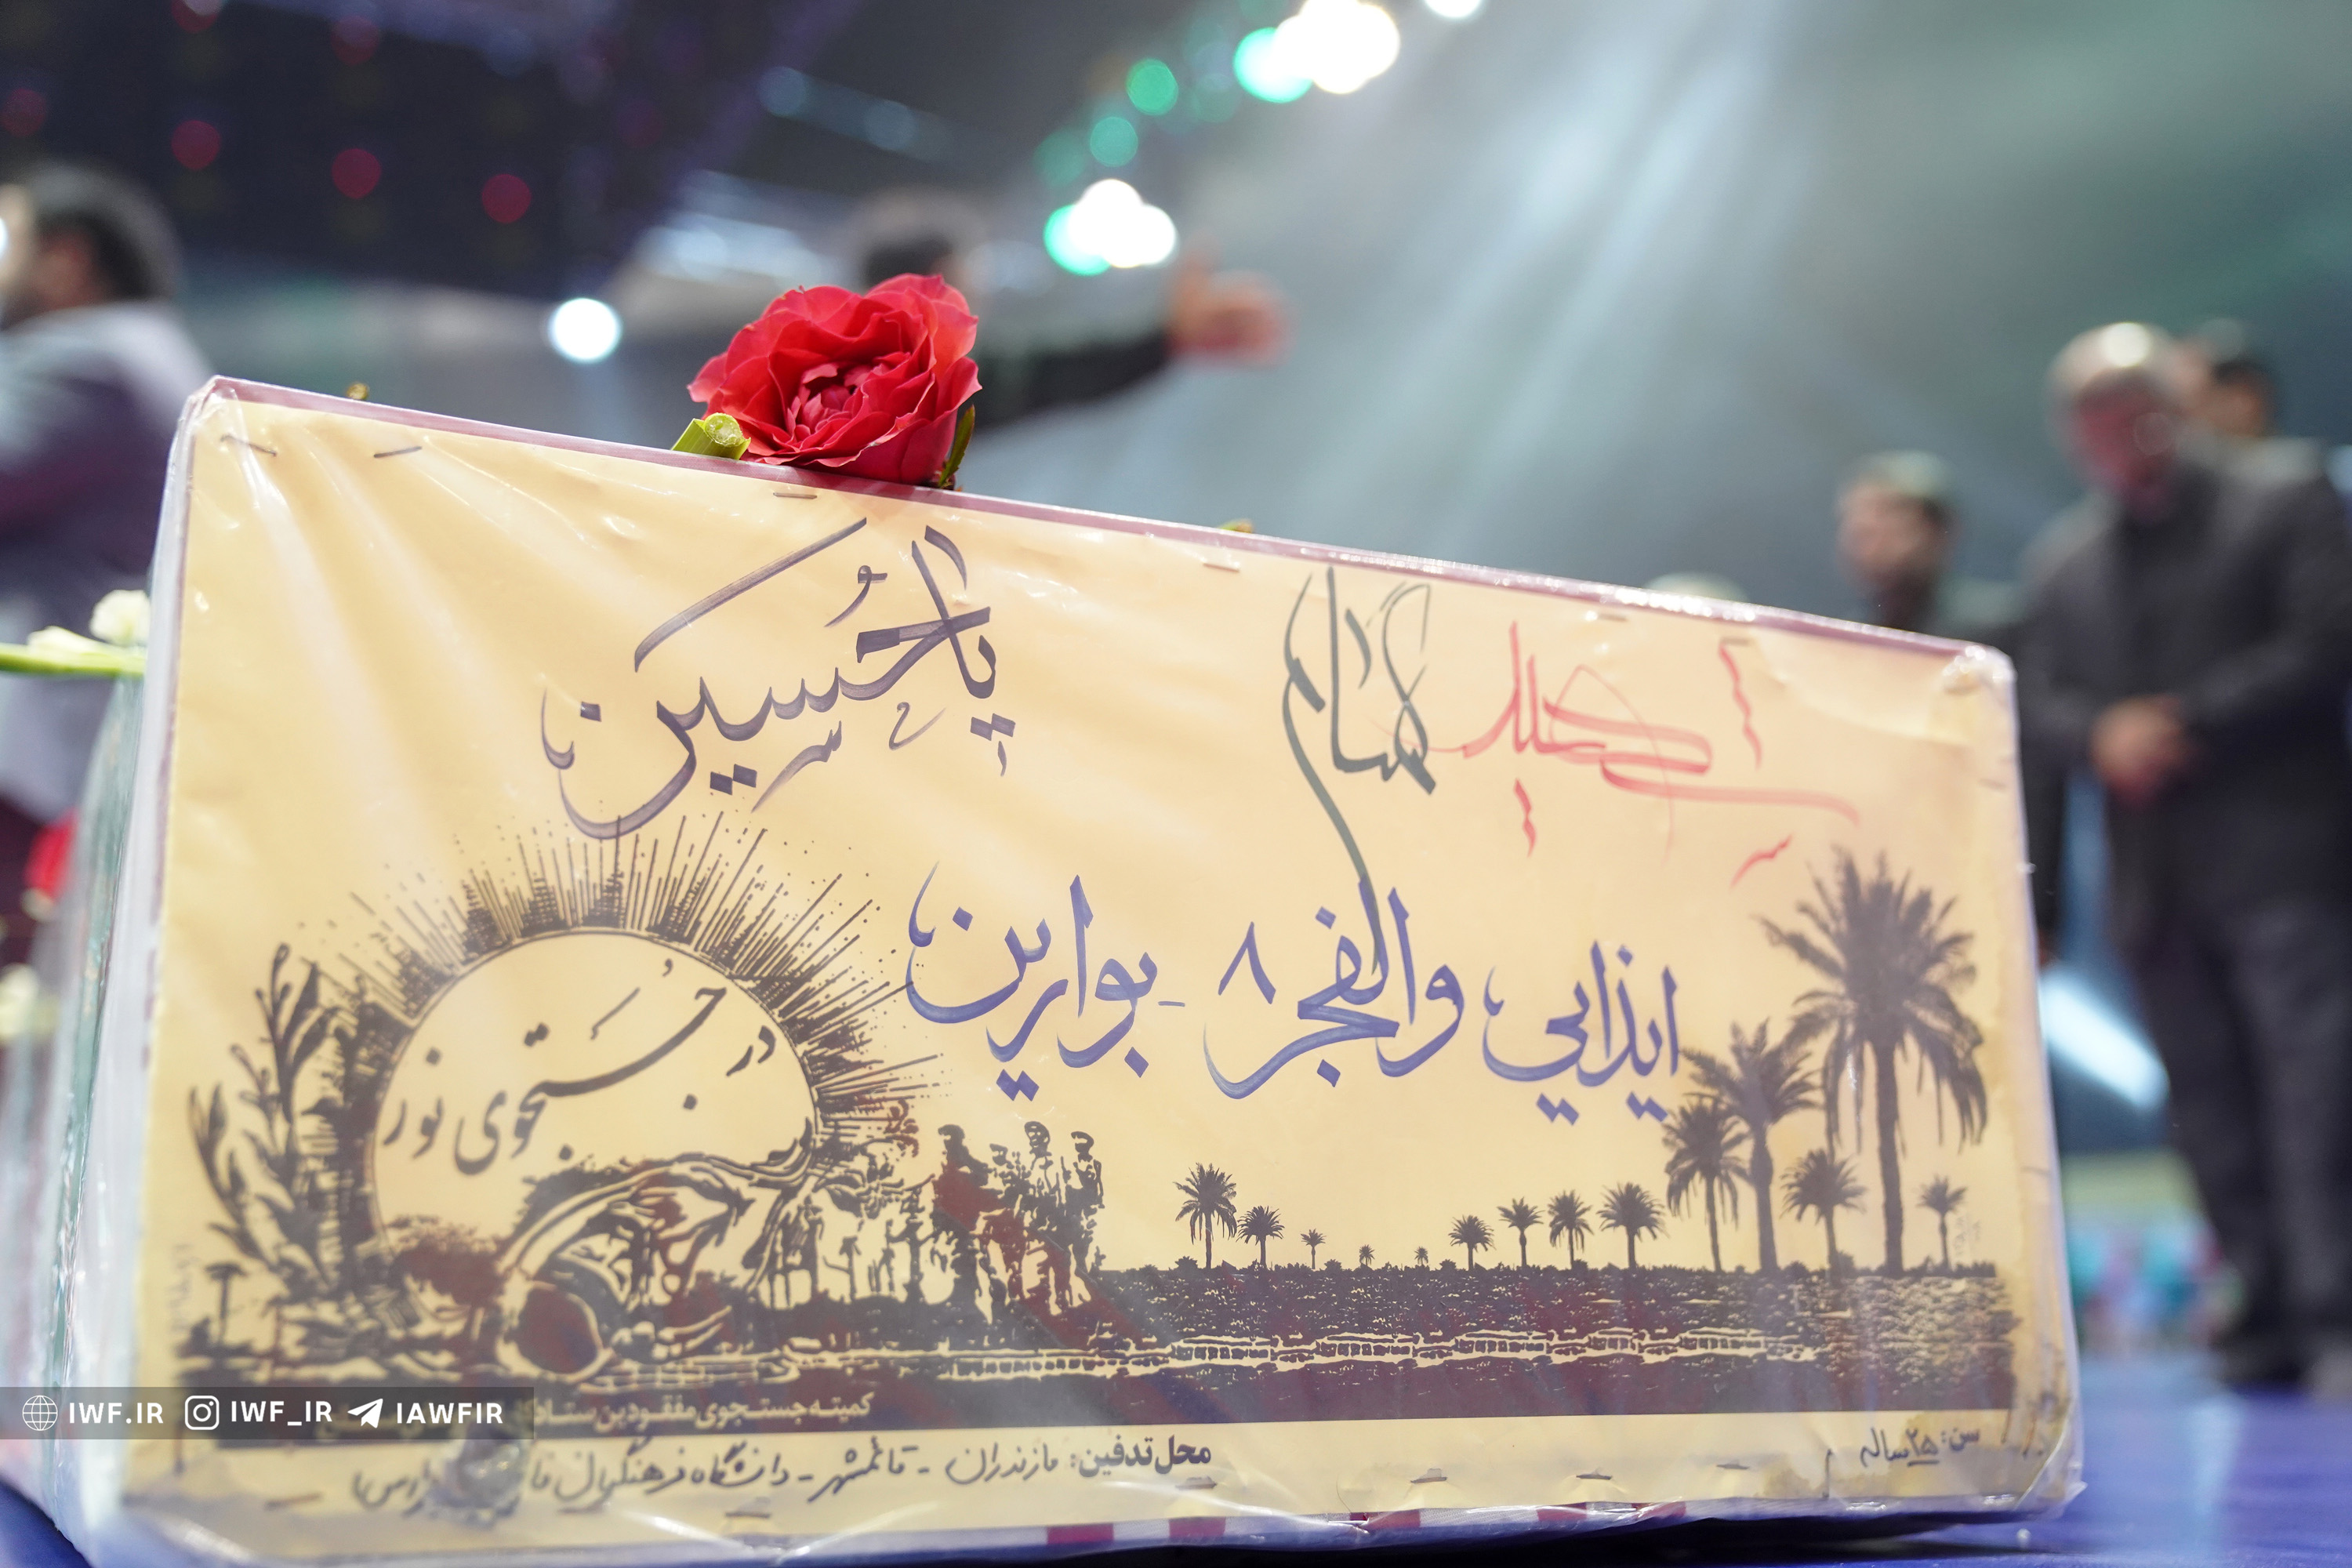 یا حسین
شهید گمنام
ایذایی والفجر ۸ - بوارین
در جستجوی نور
کمیته جستجوی مفقودین ستاد
سن: ۲۵ ساله
محل تدفین: مازندران - قائمشهر - دانشگاه فرهنگیان
IWF.IR IWF_IR IAWFIR